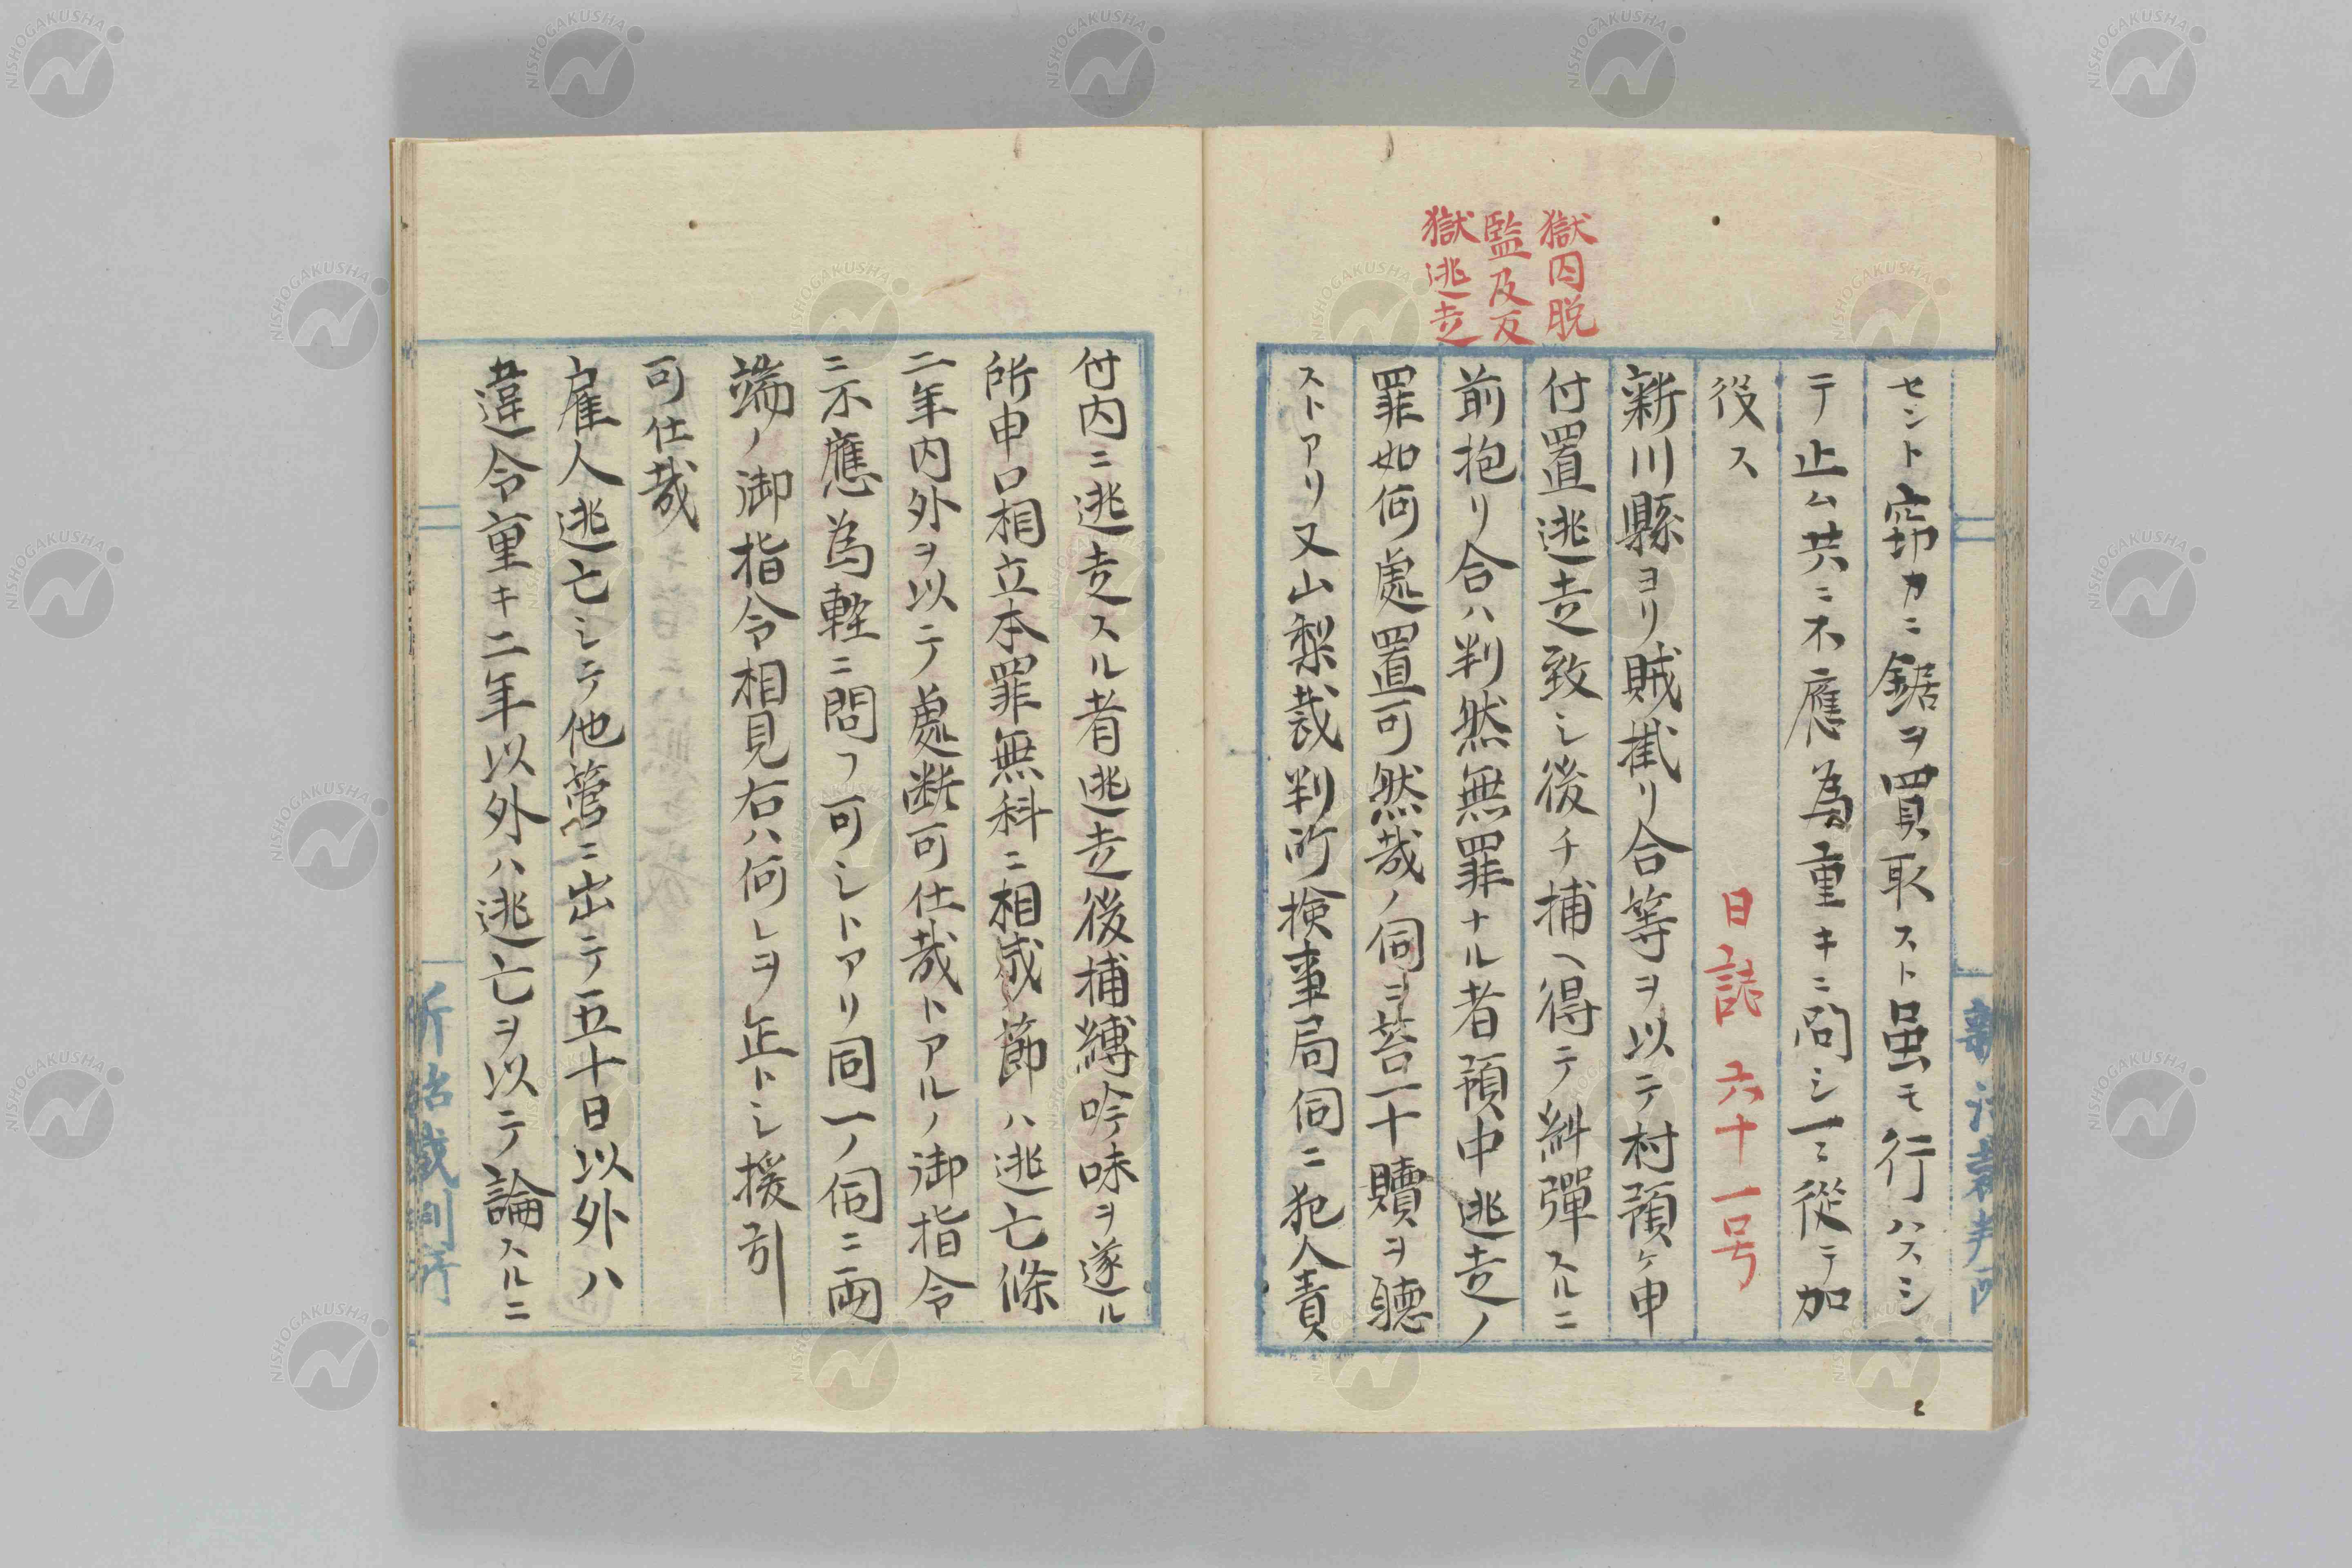 セント窃カニ鋸ヲ買取スト虽モ行ハスシ
テ止ム共ニ不應為重キニ問シ一ニ從テ加
役ス
日誌六十一号
獄囚脱
監及反
獄逃走
新川縣ヨリ賊掛リ合等ヲ以テ村預ケ申
付置逃走致シ後チ捕ヘ得テ糾彈スルニ
前抱リ合ハ判然無罪ナル者預中逃走ノ
罪如何處置可然哉ノ伺ヲ苔一十贖ヲ聴
ストアリ又山梨裁判所検事局伺ニ犯人責
付内ニ逃走スル者逃走後捕縛吟味ヲ遂ル
所申口相立本罪無科ニ相成節ハ逃亡條
二年内外ヲ以テ處断可仕哉トアルノ御指令
ニ不應為軽ニ問フ可シトアリ同一ノ伺ニ両
端ノ御指令相見右ハ何レヲ正トシ援引
可仕哉
雇人逃亡シテ他營ニ出テ五十日以外ハ
違令重キ二年以外ハ逃亡ヲ以テ論スルニ
NISHOGAKUSHA